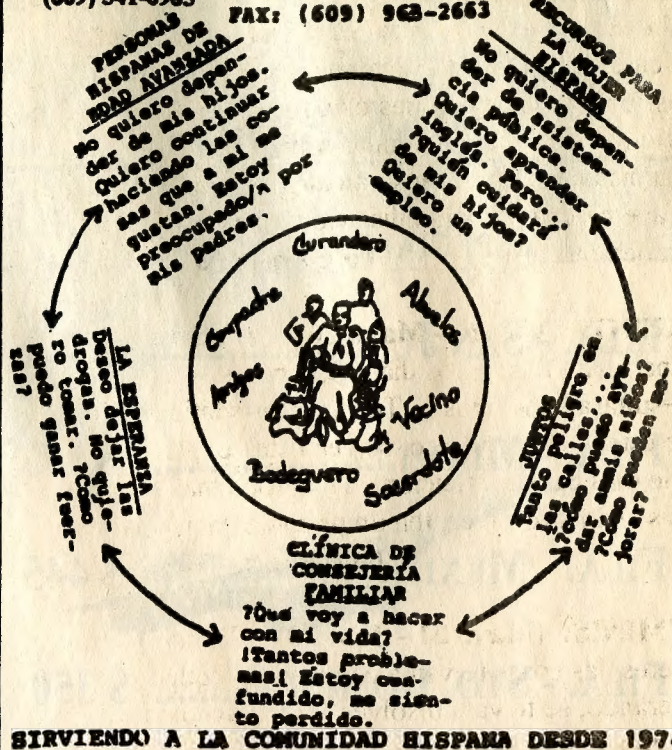 FAX: (609) 963-2663
PERSONAS
HISPANAS DE
EDAD AVANZADA
No quiero depen-
der de mis hijos.
Quiero continuar
haciendo las co-
sas que a mi me
gustan. Estoy
preocupado/a por
mis padres.
RECURSOS PARA
LA MUJER
HISPANA
No quiero depen-
der de asisten-
cia pública.
Quiero aprender
inglés. Pero...
?quién cuidará
de mis hijos?
Quiero un
empleo.
Curandero
Compadre
Abuelos
Amigos
Vecino
Bodeguero
Sacerdote
LA ESPERANZA
Deseo dejar las
drogas. No quie-
ro tomar. ?Cómo
puedo ganar fuer-
zas?
JUNTOS
Tanto peligro en
las calles,...
?cómo puedo ayu-
dar a mis niños?
?Cómo pueden me-
jorar?
CLÍNICA DE
CONSEJERÍA
FAMILIAR
?Qué voy a hacer
con mi vida?
!Tantos proble-
mas! Estoy con-
fundido, me sien-
to perdido.
SIRVIENDO A LA COMUNIDAD HISPANA DESDE 197